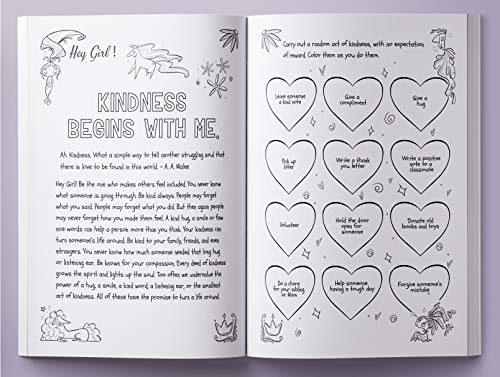 Hey Girl !
KINDNESS
BEGINS WITH ME.
Ah Kindness. What a simple way to tell another struggling soul that
there is love to be found in this world. – A. A. Malee
Hey Girl! Be the one who makes others feel included. You never know
what someone is going through. Be kind always. People may forget
what you said. People may forget what you did. But then again people
may never forget how you made them feel. A kind hug, a smile or few
nice words can help a person more than you think. Your kindness can
turn someone's life around. Be kind to your family, friends, and even
strangers. You never know how much someone needed that long hug
or listening ear. Be known for your compassion. Every deed of kindness
grows the spirit and lights up the soul. Too often we undervalue the
power of a hug, a smile, a kind word, a listening ear, or the smallest
act of kindness. All of these have the promise to turn a life around.
Carry out a random act of kindness, with no expectation
of reward. Color them as you do them.
Leave someone
a kind note
Give a
compliment
Give a
hug
Pick up
litter
Write a thank
you letter
Write a positive
note to a
classmate
Volunteer
Hold the door
open for
someone
Donate old
books and toys
Do a chore
for your sibling
or Mom
Help someone
having a tough day
Forgive someone's
mistake